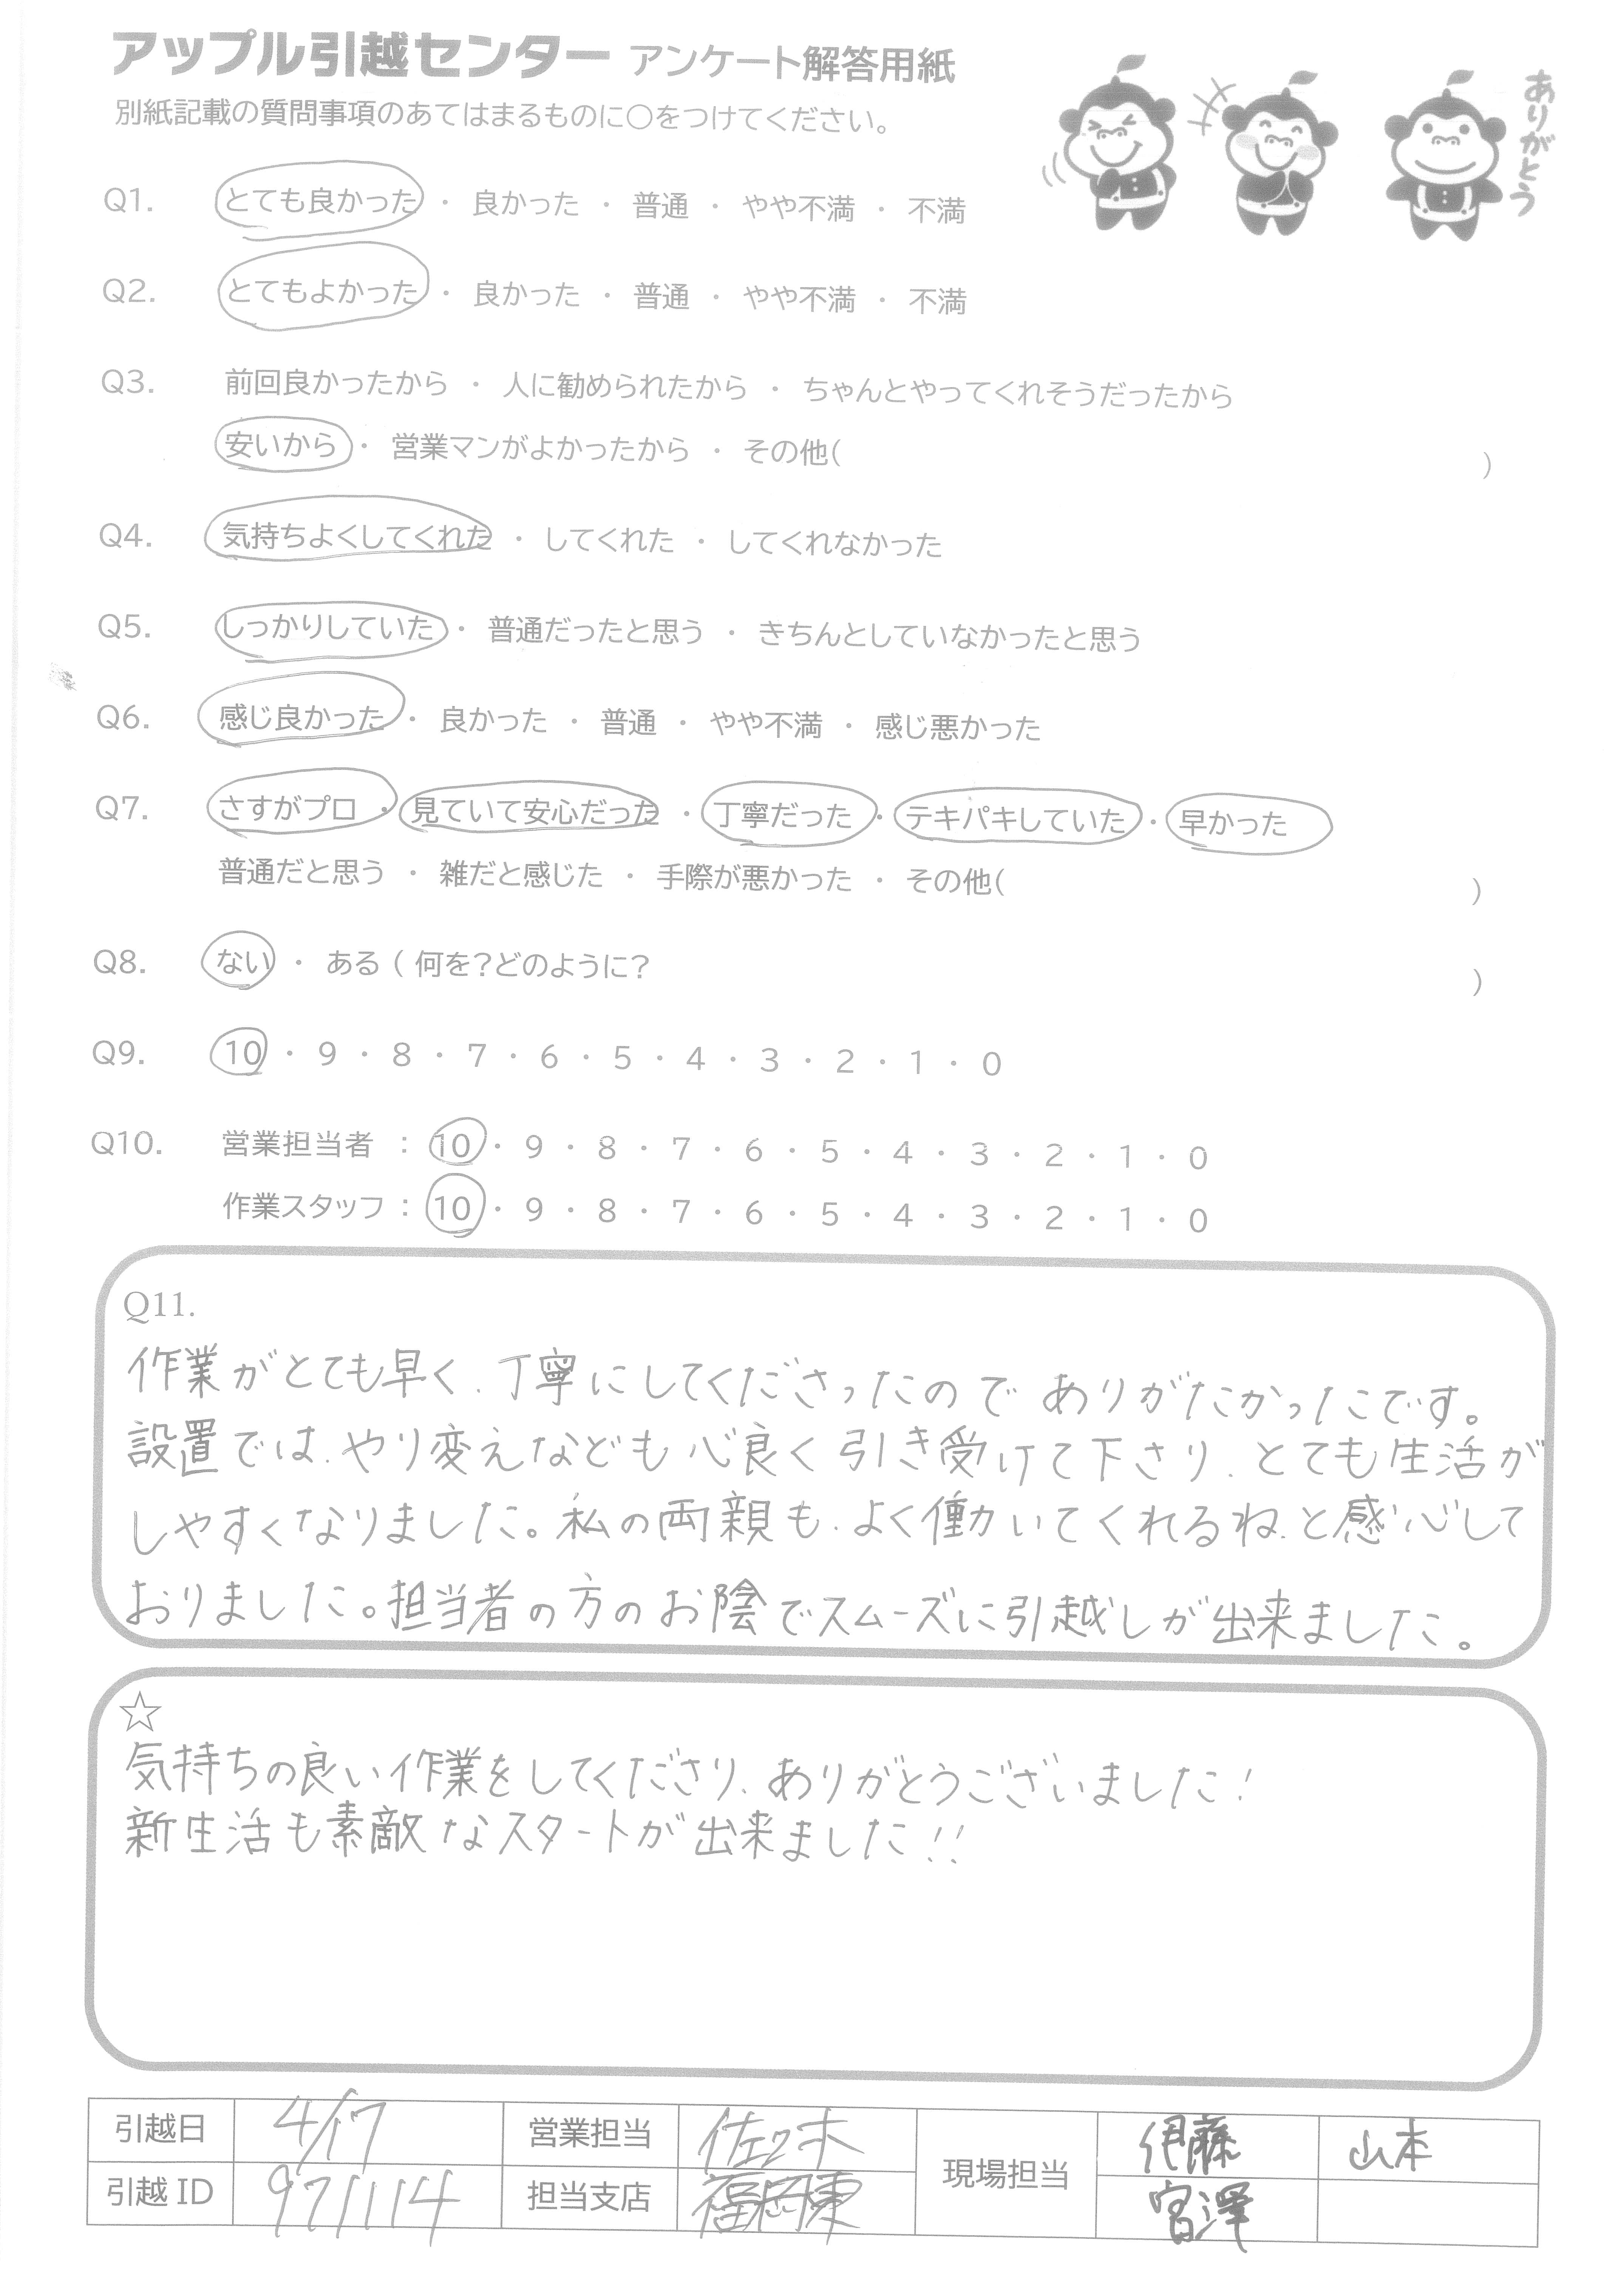 アップル引越センター アンケート解答用紙
別紙記載の質問事項のあてはまるものに○をつけてください。
ありがとう
Q1. とても良かった ・ 良かった ・ 普通 ・ やや不満 ・ 不満
Q2. とてもよかった ・ 良かった ・ 普通 ・ やや不満 ・ 不満
Q3. 前回良かったから ・ 人に勧められたから ・ ちゃんとやってくれそうだったから
安いから ・ 営業マンがよかったから ・ その他( )
Q4. 気持ちよくしてくれた ・ してくれた ・ してくれなかった
Q5. しっかりしていた ・ 普通だったと思う ・ きちんとしていなかったと思う
Q6. 感じ良かった ・ 良かった ・ 普通 ・ やや不満 ・ 感じ悪かった
Q7. さすがプロ ・ 見ていて安心だった ・ 丁寧だった ・ テキパキしていた ・ 早かった
普通だと思う ・ 雑だと感じた ・ 手際が悪かった ・ その他( )
Q8. ない ・ ある ( 何を?どのように? )
Q9. 10 ・ 9 ・ 8 ・ 7 ・ 6 ・ 5 ・ 4 ・ 3 ・ 2 ・ 1 ・ 0
Q10. 営業担当者 : 10 ・ 9 ・ 8 ・ 7 ・ 6 ・ 5 ・ 4 ・ 3 ・ 2 ・ 1 ・ 0
作業スタッフ : 10 ・ 9 ・ 8 ・ 7 ・ 6 ・ 5 ・ 4 ・ 3 ・ 2 ・ 1 ・ 0
Q11.
作業がとても早く、丁寧にしてくださったので ありがたかったです。
設置では、やり変えなども心良く引き受けて下さり、とても生活が
しやすくなりました。私の両親も、よく働いてくれるね、と感心して
おりました。担当者の方のお陰でスムーズに引越しが出来ました。
☆
気持ちの良い作業をしてくださり、ありがとうございました!
新生活も素敵なスタートが出来ました!!
引越日 4/17 営業担当 佐々木 現場担当 伊藤 山本
引越 ID 971114 担当支店 福岡東 宮澤